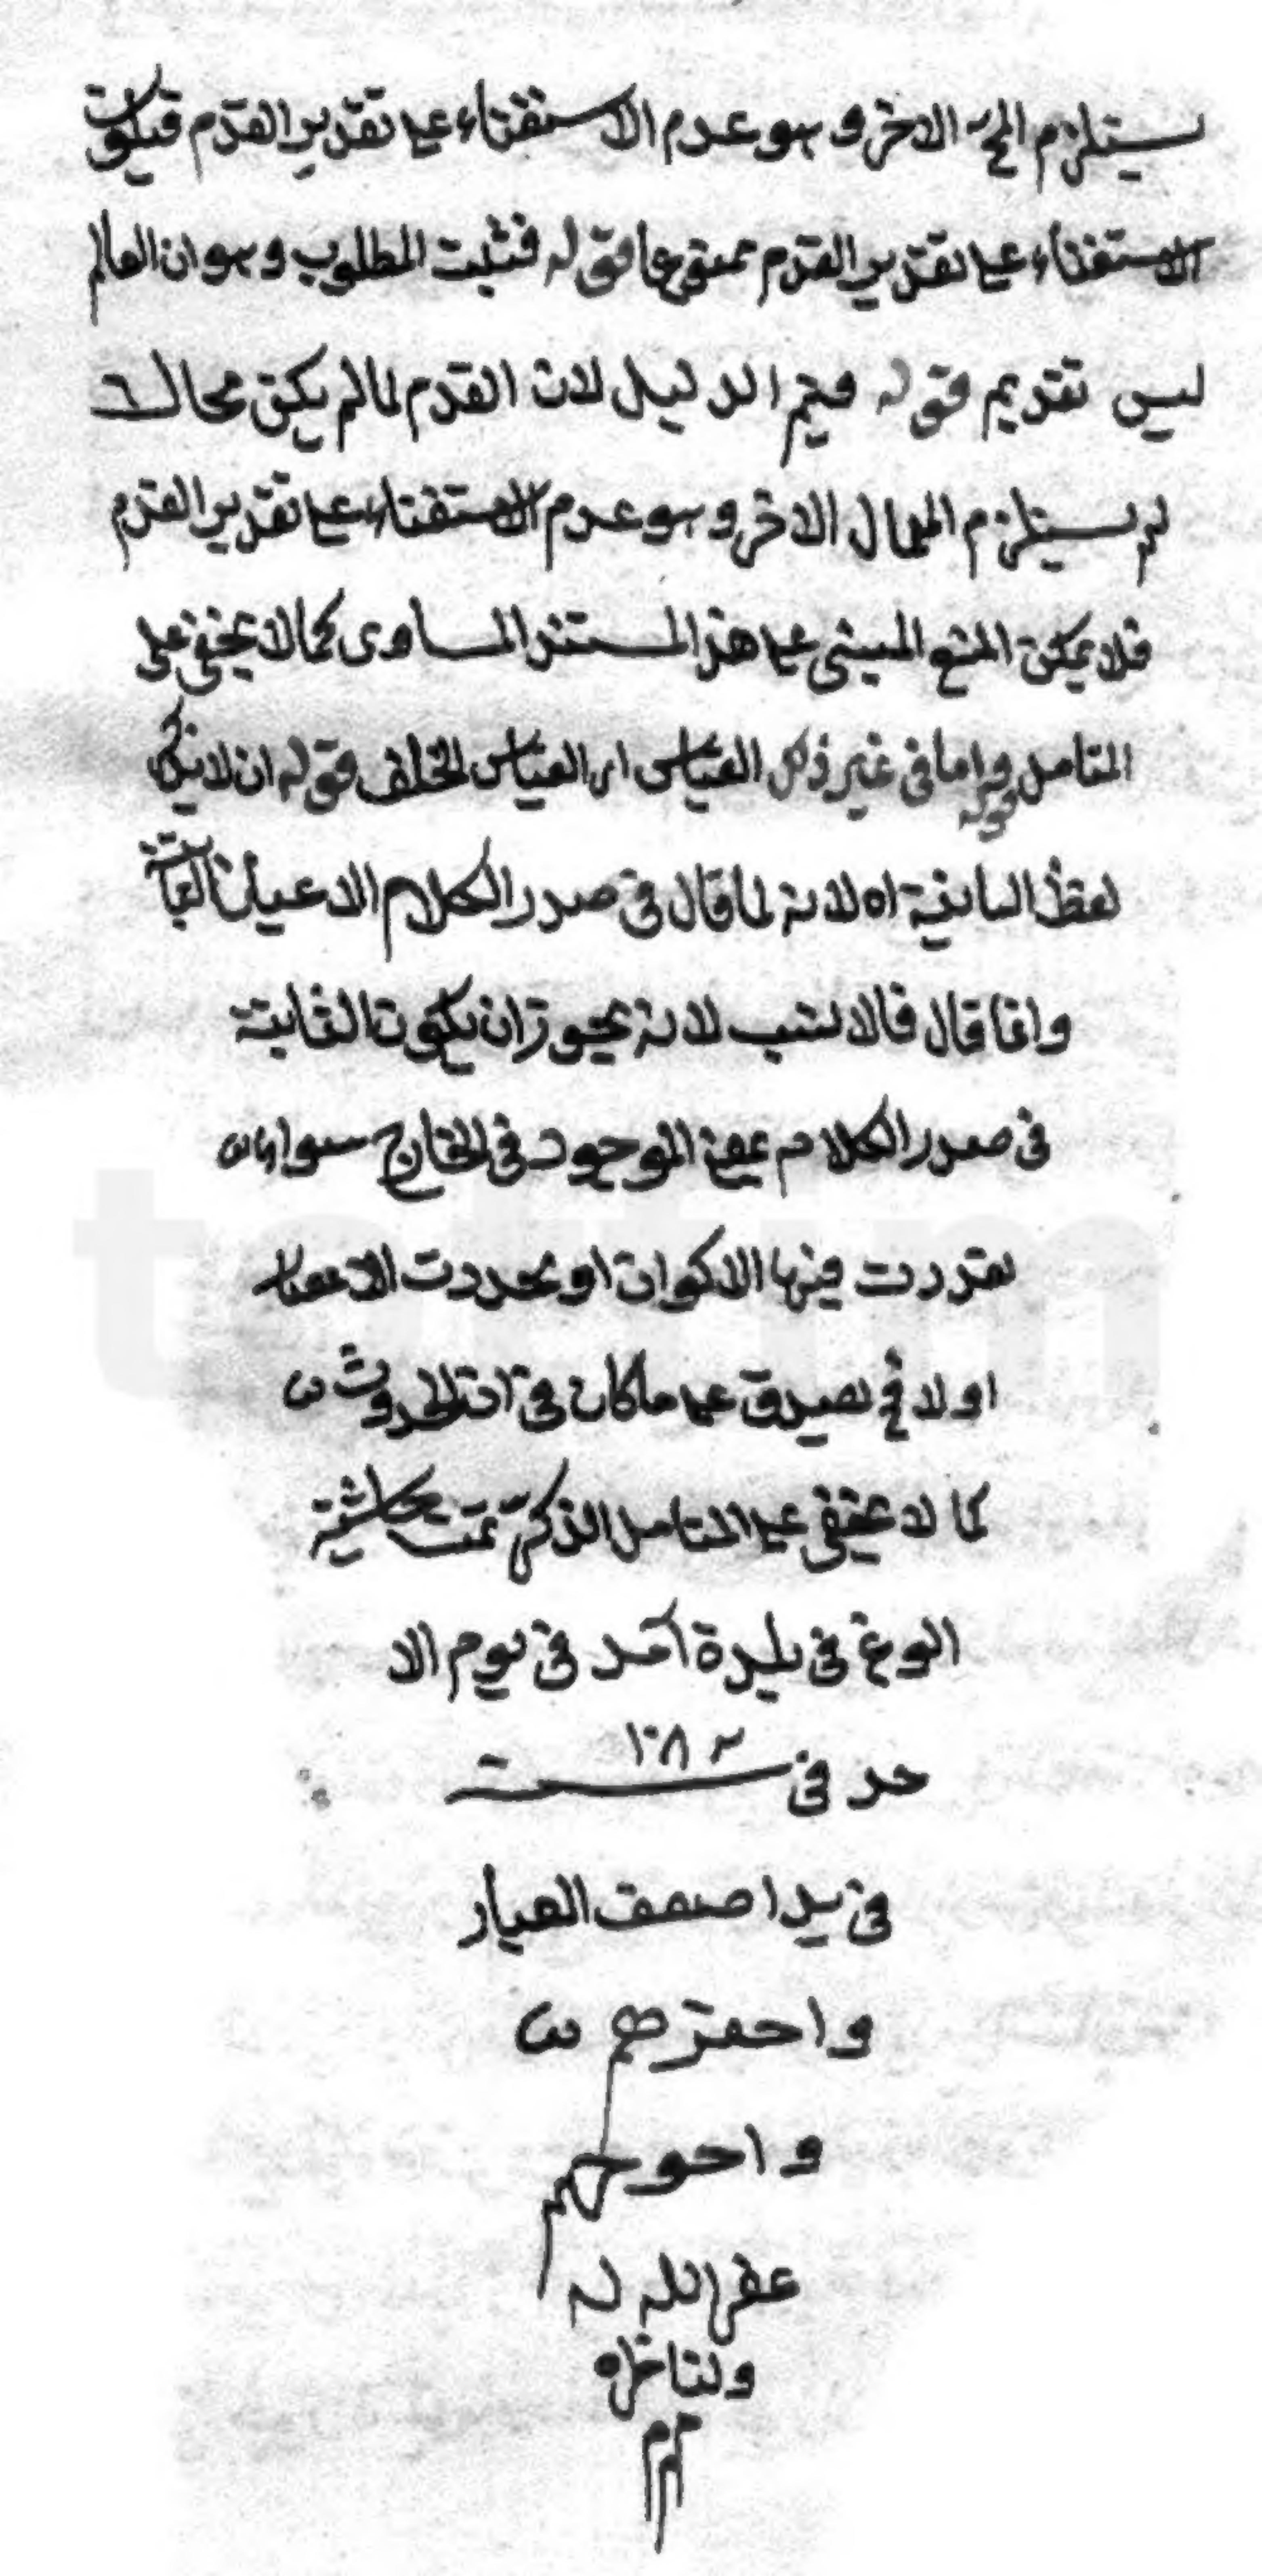 يستلزم المح الاخر وهو عدم الاستغناء على تقدير القدم فيكون
الاستغناء على تقدير القدم قوله فثبت المطلوب وهو ان العالم
ليس تقديم قوله فيتم الدليل لان القدم لما لم يكن محالا
لم يستلزم المحال الاخر وهو عدم الاستغناء على تقدير القدم
فلا يمكن المنع المبني على هذا المستند المساوى كما لا يخفى على
المتامل قوله واما فى غير ذلك القياس اى القياس الخلف قوله ان لا يذكر
لفظ الثانية اه لانه لما قال فى صدر الكلام الاعيان الثابتة
وانما قال فالانسب لانه يجوز ان يكون الثابتة
فى صدر الكلام بمعنى الموجود فى الخارج سواء كان
تعددت فيها الاكوان او تجددت الاعصار
او لا فح يصدق على ما كان فى آن الحدوث
كما لا يخفى على المتامل الذكى تمت حاشية
الوغ فى بلدة آمد فى يوم الا
حد فى سنت ١٠٨٢
فى يد اضعف العباد
واحقرهم
واحوجهم
غفر الله له
ولناظره